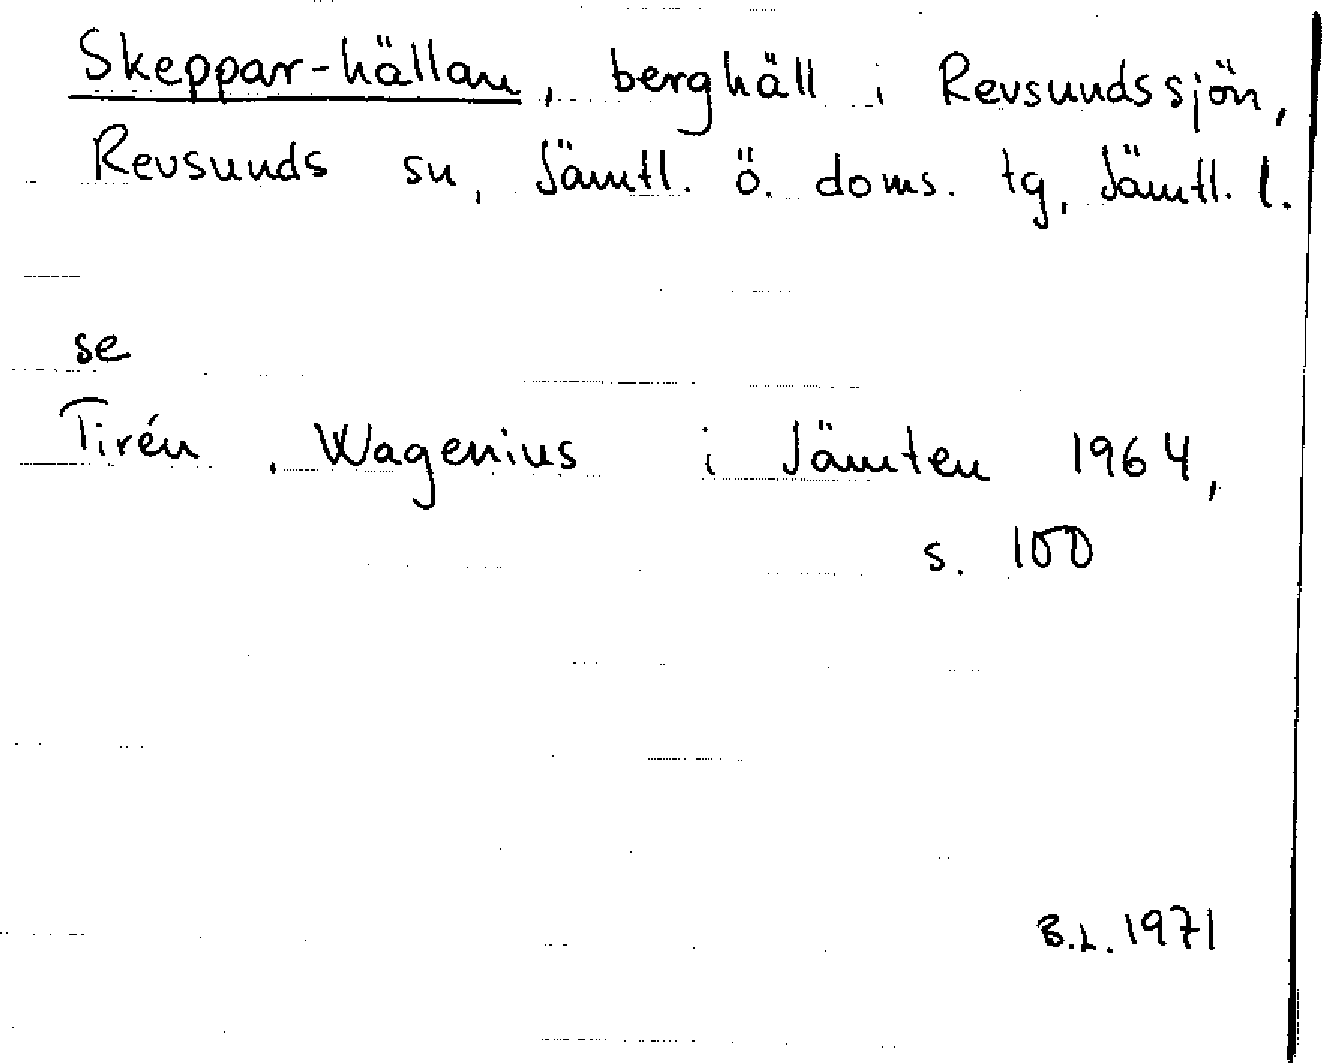 Skeppar-hällan, berghäll i Revsundssjön,
Revsunds sn, Jämtl. ö. doms. tg, Jämtl. l.
se
Tirén, Wagenius i Jämten 1964,
s. 100
B.L. 1971